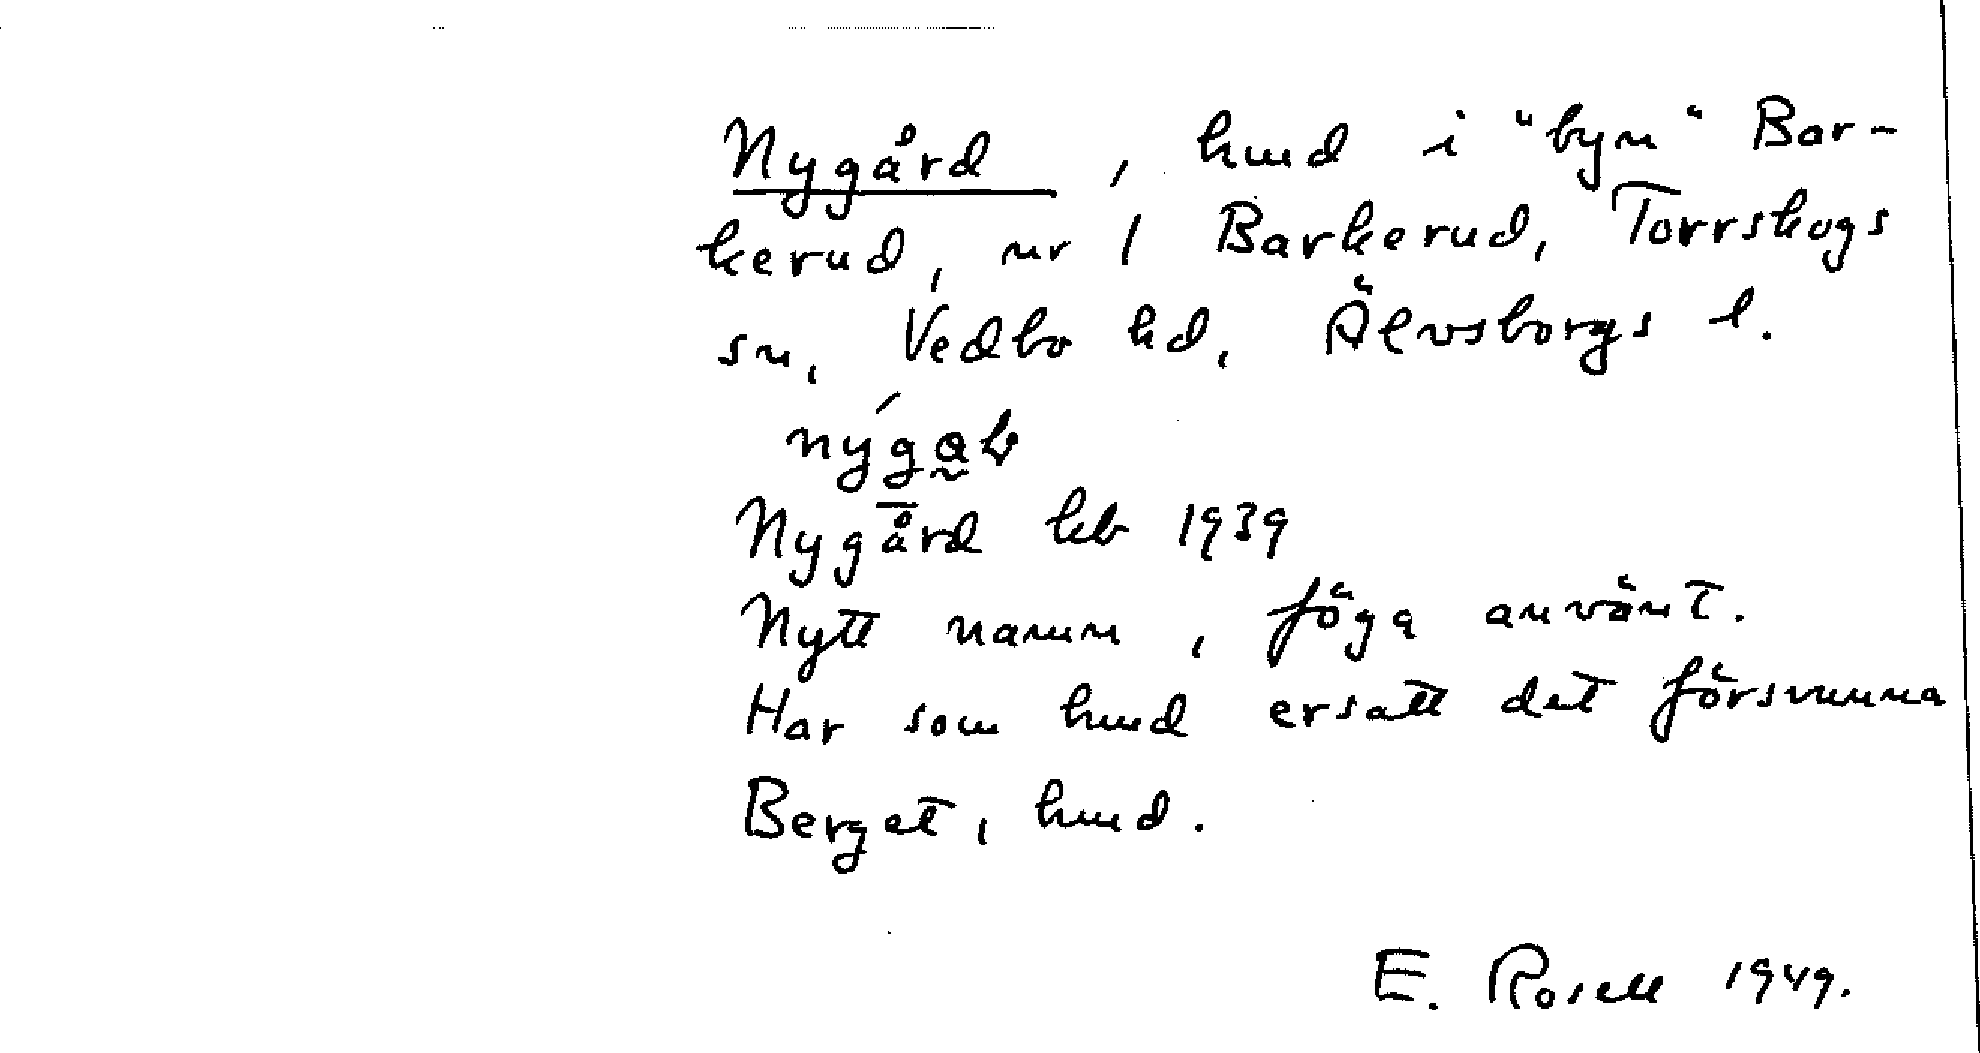 Nygård, hmd i "byn" Bar-
kerud, nr 1 Barkerud, Torrskogs
sn, Vedbo hd, Älvsborgs l.
Nygård kb 1939
Nytt namn, föga använt.
Har som hmd ersatt det försvunna
Berget, hmd.
E. Rosell 1949.